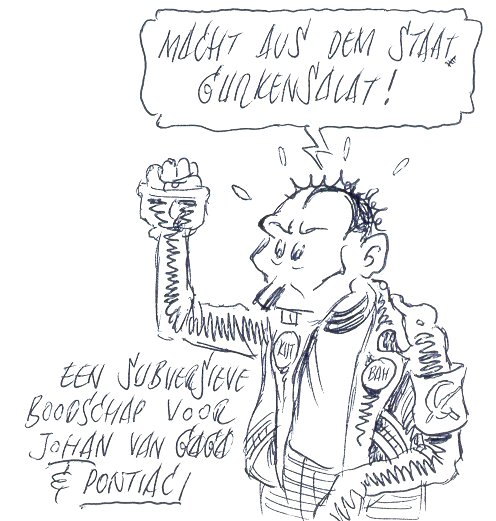 MACHT AUS DEM STAAT,
GURKENSALAT!
KIJI
BAH
EEN SUBVERSIEVE
BOODSCHAP VOOR
JOHAN VAN GAGA
& PONTIAC!